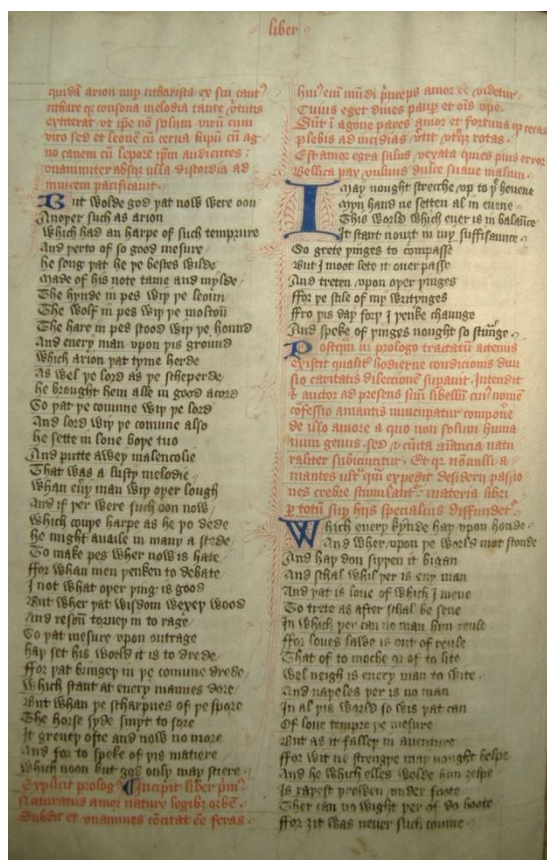 liber
quidā arion nup citharista ex sui cant
cithare qz consona melodia tante v̓tutis
extiterat vt ipe nō solum virū cum
viro sed et leonē cū cerua lupū cū ag
no canem cū lepore ip̄m audientes
vnanimiter absqz vlla discordia ad
inuicem pacificauit
But wolde god þat now were oon
Anoþer such as arion
Which had an harpe of such temprure
And þerto of so good mesure
he song þat he þe bestes wilde
Made of his note tame and mylde
The hynde in pes wiþ þe leoun
The wolf in pes wiþ þe moltoū
The hare in pes stood wiþ þe hound
And euery man vpon þis ground
Which arion þat tyme herde
As wel þe lord as þe scheperde
he brought hem alle in good acord
So þat þe comune wiþ þe lord
And lord wiþ þe comune also
he sette in loue boþe tuo
And putte awey malencolie
That was a lusty melodie
Whan eūy man wiþ oþer lough
And if þer were such oon now
Which couþe harpe as he þo dede
he might auaile in many a stede
To make pes wher now is hate
ffor whan men þenken to debate
I not what oþer þing is good
But wher þat wisdom wexeþ wood
And resoū torneþ in to rage
So þat mesure vpon outrage
haþ set his world it is to drede
ffor þat bringeþ in þe comune drede
Which stant at euery mannes dore
But whan þe scharpnes of þe spore
The horse syde smyt to sore
It greueþ ofte and now no more
And for to speke of þis matiere
Which noon but god only may stiere
Explicit prolog Incipit liber pm̄
Naturatus amor nature legibz orbē
Subdit et vnanimes cōcitat eē feras
huiꝰ em̄ mūdi pͥnceps amor eē videtur
Cuius eget diues paup et oīs ope
Sūt ī agone pares amor et fortuna qͥ cecas
plebis ad insidias v̓tit vtͥqz rotas
Est amor egra salus vexata quies pius error
Bellica pax vulnus dulce suaue malum
I may nought strecche vp to þͤ heuene
Myn hand ne setten al in euene
This world which euer is in balāce
It stant nouȝt in my suffisaunce
So grete þinges to compasse
But I moot lete it ouer passe
And treten vpon oþer þinges
ffor þe stile of my writynges
ffro þis day forþ I þenke chaunge
And speke of þinges nought so strūge
Postqm̄ in prologo tractatū actenus
existit qualit hodierne condicionis diui
sio caritatis dileccionē supauit Intendit
auctor ad presens suū libellū cuiꝰ nomē
cōfessio amantis nūcupatur compone
de illo amore a quo non solum huma
num genus sed ⁊ cūcta aīancia natu
raliter subiciuntur Et qz nōnulli a
mantes vltͣ qͫ expedit desiderij passio
nes crebre stimulant materia libri
p totū sup hijs specialius diffunditͬ
Which euery kynde haþ vpon honde
And wher vpon þe world mot stonde
And haþ don siþþen it bigan
And schal whil þer is eny man
And þat is loue of which I mene
To trete as after schal be sene
In which þer can no man him reule
ffor loues lawe is out of reule
That of to moche or of to lite
Wel neigh is euery man to wite
And naþeles þer is no man
In al þis world so wis þat can
Of loue tempre þe mesure
But as it falleþ in auenture
ffor wit ne strengþe may nought helpe
And he which elles wolde him ȝelpe
Is raþest þrowen vnder foote
Ther can no wight þer of do boote
ffor ȝit was neuer such couine